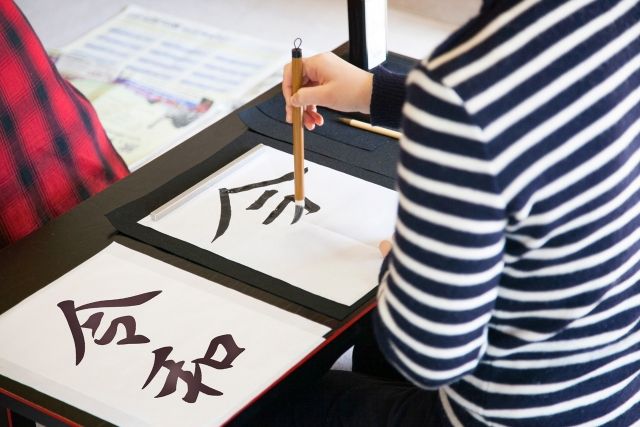 令和
令